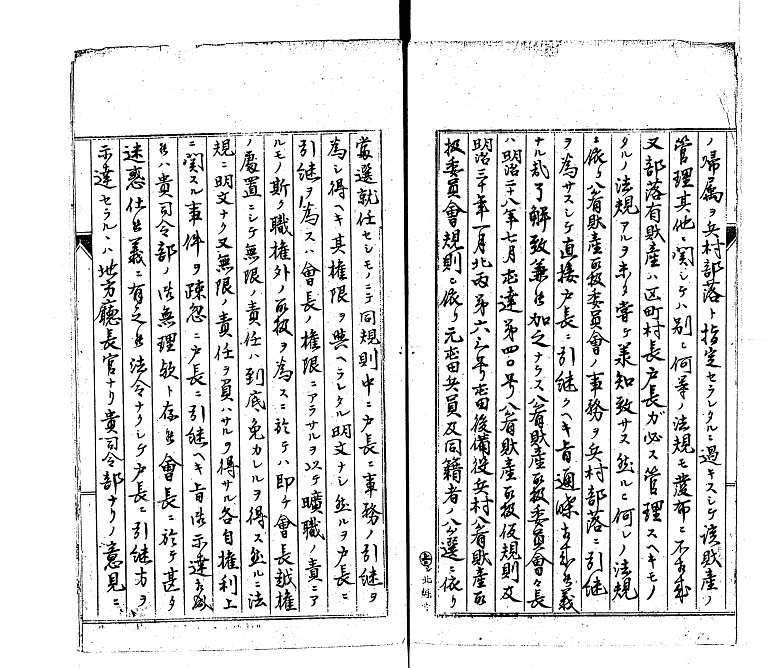 ノ帰属ヲ兵村部落ト指定セラレタルニ過キスシテ該財産ノ
管理其他ニ関シテハ別ニ何等ノ法規モ発布ニ不相成
又部落有財産ハ区町村長戸長ガ必ス管理スヘキモノ
タルノ法規アルヲ未タ嘗テ承知致サス然ルニ何レノ法規
ニ依リ公有財産取扱委員会ノ事務ヲ兵村部落ニ引継
ヲ為サスシテ直接戸長ニ引継クヘキ旨通牒相成候義
ナル哉了解致兼候加之ナラス公有財産取扱委員會々長
ハ明治二十八年七月屯達第四〇号公有財産取扱仮規則及
明治三十年一月北丙第六三号屯田後備役兵村公有財産取
扱委員會規則ニ依リ元屯田兵員及同籍者ノ公選ニ依リ
當選就任セシモノニテ同規則中ニ戸長ニ事務ノ引継ヲ
為シ得ヘキ其権限ヲ與ヘラレタル明文ナシ然ルヲ戸長ニ
引継ヲ為スハ會長ノ権限ニアラサルヲ以テ曠職ノ責ニア
ルモノ斯ク職権外ノ取扱ヲ為スニ於テハ即チ會長越権
ノ處置ニシテ無限ノ責任ハ到底免カレルヲ得ス然ルニ法
規ニ明文ナク又無限ノ責任ヲ負ハサルヲ得サル各自権利上
ニ関スル事件ヲ疎忽ニ戸長ニ引継ヘキ旨御示達相成
候ハ貴司令部ノ御無理歟ト存候會長ニ於テ甚タ
迷惑仕候義ニ有之候法令ナクシテ戸長ニ引継方ヲ
示達セラルヽハ地方廳長官ナリ貴司令部ナリノ意見ニ